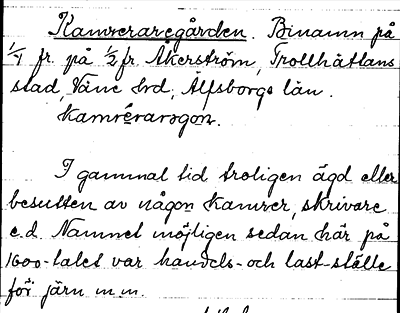 Kamreraregården. Binamn på
1/4 fr. på 1/2 fr. Åkerström, Trollhättans
stad, Väne hrd, Älfsborgs län.
kamrérarogon.
I gammal tid troligen ägd eller
besutten av någon kamrer, skrivare
e.d. Namnet möjligen sedan här på
1600-talet var handels- och last-ställe
för järn m.m.